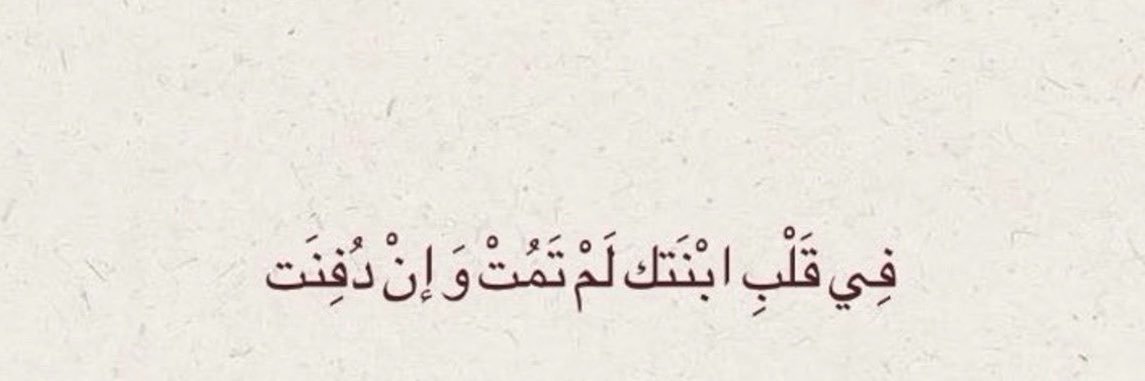 فِي قَلْبِ ابْنَتك لَمْ تَمُتْ وَ إنْ دُفِنَت